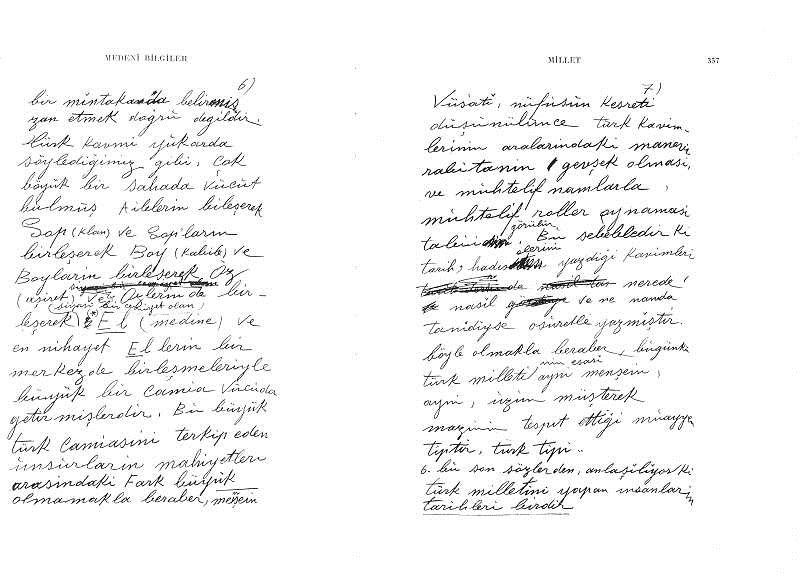 MEDENİ BİLGİLER
6)
bir mıntakada belirmiş
zan etmek doğru değildir.
Türk kavmi yukarda
söylediğimiz gibi, çok
böyük bir sahada vücut
bulmuş Ailelerin birleşerek
Sop (klan) ve Sop'ların
birleşerek Boy (kabile) ve
Boyların birleşerek Öz
(aşiret) ve Özlerin de bir-
(siyasi bir cemiyet olan)
leşerek) El (medine) ve
en nihayet Ellerin bir
merkezde birleşmeleriyle
büyük bir Camia vücuda
getirmişlerdir. Bu büyük
türk Camiasini terkip eden
unsurların mahiyetleri
arasındaki Fark büyük
olmamakla beraber, menşein
MİLLET
357
7)
Vüs'ati, nüfusun kesreti
düşünülünce türk kavim-
lerinin aralarındaki manevi
rabıtanın gevşek olması,
ve muhtelif namlarla,
muhtelif roller oynaması
görülür
tabii. Bu sebebledir ki
tarih, yazdığı kavimleri
nerede,
nasıl ve ne namda
tanıdıyse o suretle yazmıştır.
böyle olmakla beraber, bugünkü
türk milleti aynı menşein,
aynı, uzun müşterek
mazinin tespit ettiği muayyen
tiptir, türk tipi..
6. bu son sözlerden, anlaşılıyor ki
türk milletini yapan insanların
tarihleri birdir